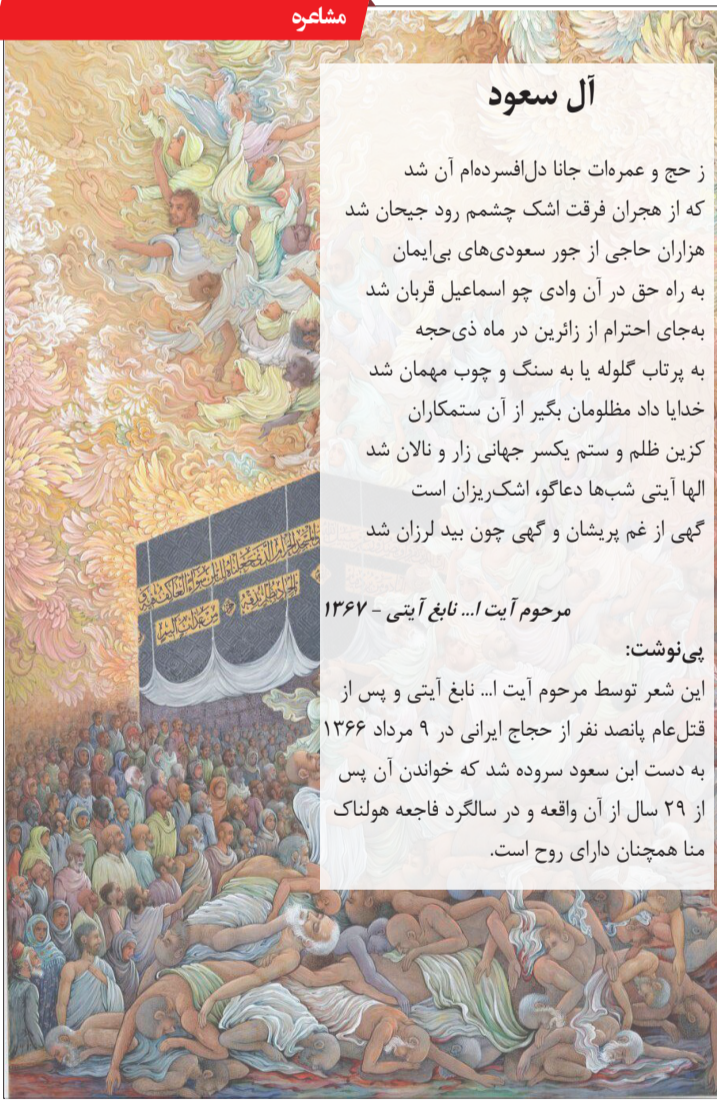 مشاعره
آل سعود
ز حج و عمره‌ات جانا دل‌افسرده‌ام آن شد
که از هجران فرقت اشک چشمم رود جیحان شد
هزاران حاجی از جور سعودی‌های بی‌ایمان
به راه حق در آن وادی چو اسماعیل قربان شد
به‌جای احترام از زائرین در ماه ذی‌حجه
به پرتاب گلوله یا به سنگ و چوب مهمان شد
خدایا داد مظلومان بگیر از آن ستمکاران
کزین ظلم و ستم یکسر جهانی زار و نالان شد
الها آیتی شب‌ها دعاگو، اشک‌ریزان است
گهی از غم پریشان و گهی چون بید لرزان شد
مرحوم آیت ا... نابغ آیتی - ۱۳۶۷
پی‌نوشت:
این شعر توسط مرحوم آیت ا... نابغ آیتی و پس از
قتل‌عام پانصد نفر از حجاج ایرانی در ۹ مرداد ۱۳۶۶
به دست ابن سعود سروده شد که خواندن آن پس
از ۲۹ سال از آن واقعه و در سالگرد فاجعه هولناک
منا همچنان دارای روح است.